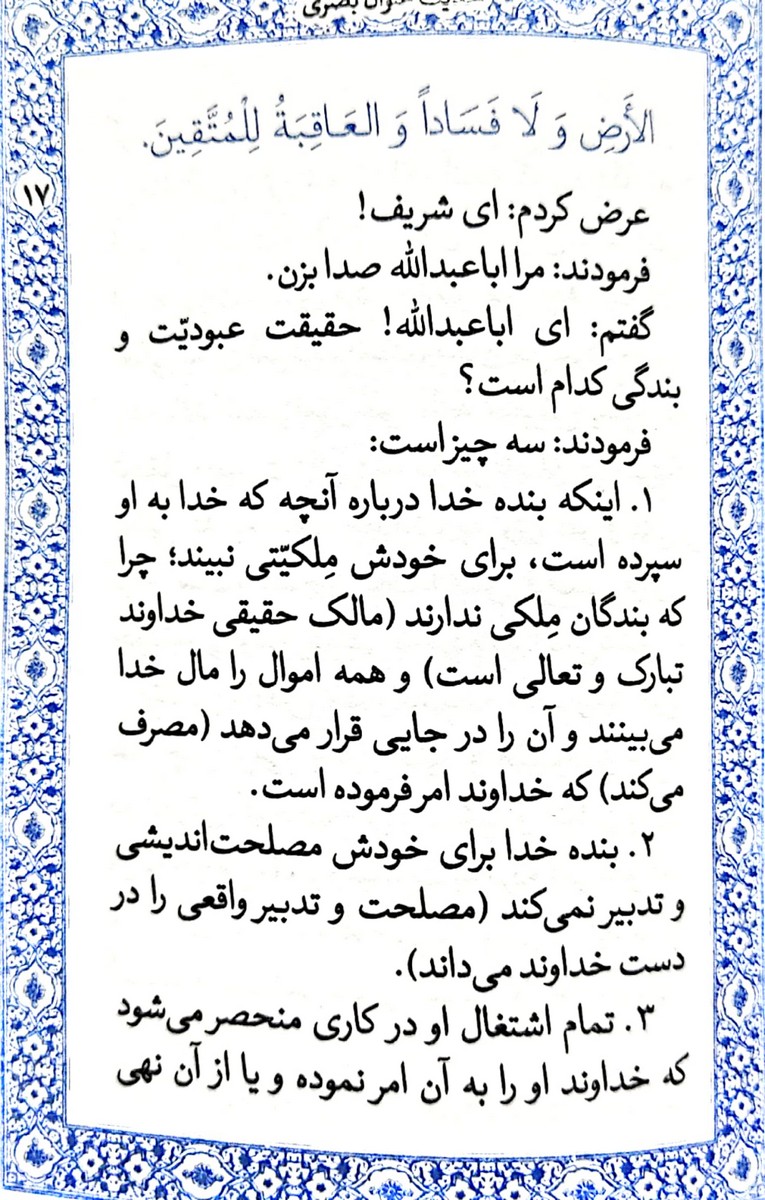 عنوان بصری
الأَرضِ وَ لَا فَسَاداً وَ العَاقِبَةُ لِلْمُتَّقِينَ.
۱۷
عرض کردم: ای شریف!
فرمودند: مرا اباعبدالله صدا بزن.
گفتم: ای اباعبدالله! حقیقت عبودیّت و
بندگی کدام است؟
فرمودند: سه چیز است:
۱. اینکه بنده خدا درباره آنچه که خدا به او
سپرده است، برای خودش مِلکیّتی نبیند؛ چرا
که بندگان مِلکی ندارند (مالک حقیقی خداوند
تبارک و تعالی است) و همه اموال را مال خدا
می‌بینند و آن را در جایی قرار می‌دهد (مصرف
می‌کند) که خداوند امر فرموده است.
۲. بنده خدا برای خودش مصلحت‌اندیشی
و تدبیر نمی‌کند (مصلحت و تدبیر واقعی را در
دست خداوند می‌داند).
۳. تمام اشتغال او در کاری منحصر می‌شود
که خداوند او را به آن امر نموده و یا از آن نهی